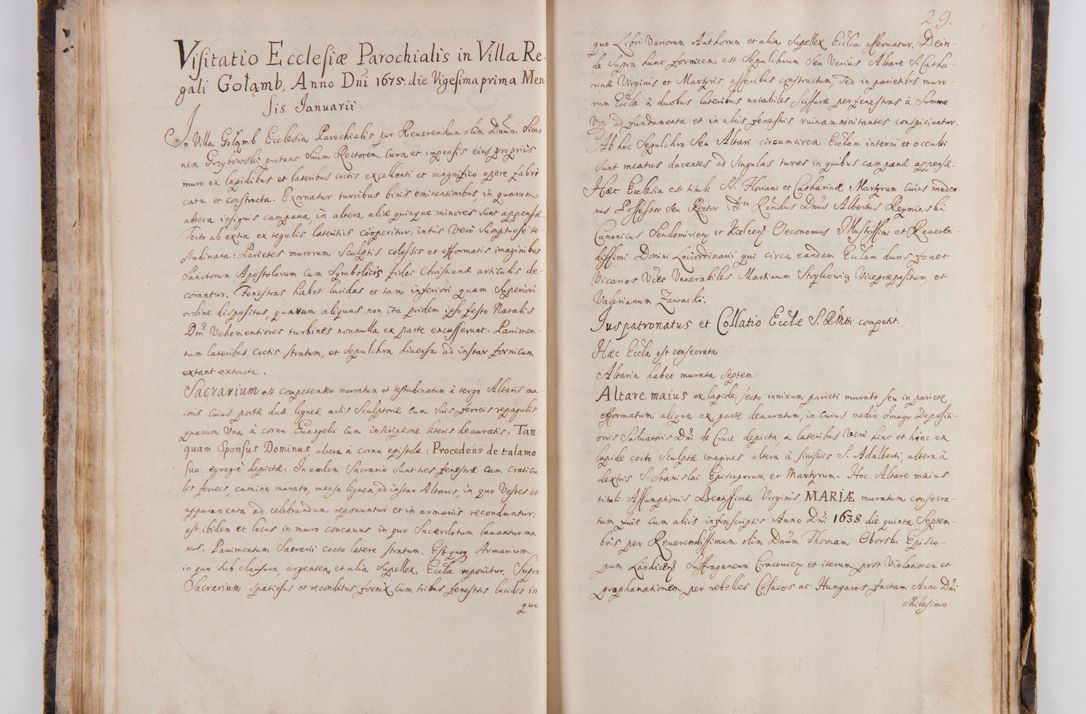 Visitatio Ecclesiæ Parochialis in Villa Re-
gali Gołąmb, Anno Dni 1675. die Vigesima prima Men
sis Januarii.
In Villa Gołąmb Ecclesia Parochialis per Reverendum olim Dnum Simo
nem Grzybowski protunc suum Rectorem cura et impensis eius proprijs
muro ex lapidibus et lateribus coctis excellenti et magnifico opere fabri
cata et constructa. Exornatur turribus binis eminentioribus, in quarum
altera insignis campana, in altera aliæ quinque minores sunt appensæ
Tecto ab extra ex tegulis lateritijs coöperitur; intus Vero sumptuosè te
studinata: Parietes murorum Sculptis colossis et efformatis imaginibus
Sanctorum Apostolorum cum Symbolicis fidei Christianæ articulis de
corantur. Fenestras habet lucidas et tam inferiori quam Superiori
ordine dispositas, quarum aliquas non ita pridem ipso festo Natalis
Dni Vehementiores turbines nonnulla ex parte excusserunt. Pavimen-
tum lateribus coctis stratum, et sepulchra diversa ad instar fornicum
extant extructa.
Sacrarium est competenter muratum et testudinatum à tergo Altaris ma
ioris cuius portæ duæ ligneæ artis Sculptoriæ cum suis ferreis repagulis
quarum Una à cornu Euangelii cum inscriptione literis deauratis, Tan
quam Sponsus Dominus altera à cornu epistolæ: Procedens de talamo
suo. egregiè depictæ: In eodem Sacrario sunt tres fenestræ cum craticu
lis ferreis, camino murato, mensa lignea ad instar Altaris, in quo Vestes et
apparamenta ad celebrandum reponuntur et in armarijs reconduntur:
est ibidem et locus in muro concavus in quo Sacerdotum lavantur ma
nus. Pavimentum Sacrarii cocto latere stratum. Est quoq Armarium
in quo sub clausura, argentea, et alia supellex Ecclæ reponitur, Supra
Sacrarium spatiosus et reconditus fornix cum tribus fenestris lucidis in
quo
29.
quo Libri Variorum Authorum et alia supellex Ecclica asservatur. Dein-
de supra hunc fornicem est Sepulchrum seu Verius Altare S. Catha-
rinæ Virginis et Martyris asseribus constructum, sed in parietibus muro
rum Ecclæ à duobus lateribus notabiles scissuræ per fenestras à summo
Usq ad fundamenta et in alijs fenestris ruinam minitantes conspiciuntur.
Ab hoc Sepulchro seu Altari circumcirca Ecclam interni et occulti
sunt meatus ducentes ad singulas turres in quibus campanæ appensæ.
Hæc Ecclesia est tituli SS. Floriani et Catharinæ Martyrum cuius moder
nus Possessor seu Rector Adm Rendus Dnus Albertus Reyminski
Canonicus Sendomirien et Kielcen Oeconomus Illustrissimi et Reveren-
dissimi Domini Loci Ordinarij qui circa eandem Ecclam duos fovet
Vicarios Vidt Venerabiles Martinum Strylkowicz Vicepræpositum, et
Valerianum Zawacki.
Jus patronatus et Collatio Ecclæ S. R. Mtti competit.
Hæc Eccla est consecrata
Altaria habet murata septem
Altare maius ex lapide secto innixum parieti murato seu in pariete
efformatum aliqua ex parte deauratum, in cuius medio imago depositi-
onis Salvatoris Dni de Cruce depicta, a lateribus Verò hinc et hinc ex
lapide cocto sculptæ imagines altera à sinistris S. Adalberti altera à
dextris S. Stanislai Episcoporum et Martyrum. Hoc Altare maius
tituli Assumptionis Beatissimæ Virginis MARIÆ muratum consecra-
tum fuit cum alijs infrascriptis Anno Dni 1638 die quinta Septem
bris per Reverendissimum olim Dnum Thomam Oborski Episco-
pum Laodicen Suffraganeum Cracovien et iterum post Violationem et
prophanationem per rebelles Cosacos ac Hungaros factam Anno Dni
Millesimo